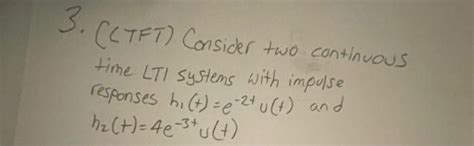 3. (CTFT) Consider two continuous
time LTI systems with impulse
responses h₁(t)=e⁻²ᵗu(t) and
h₂(t)=4e⁻³ᵗu(t)